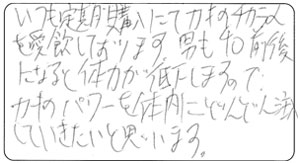 いつも定期購入にてカキのチカラ
を愛飲しております。男も40前後
になると体力が低下しますので、
カキのパワーを体内にどんどん流
していきたいと思います。